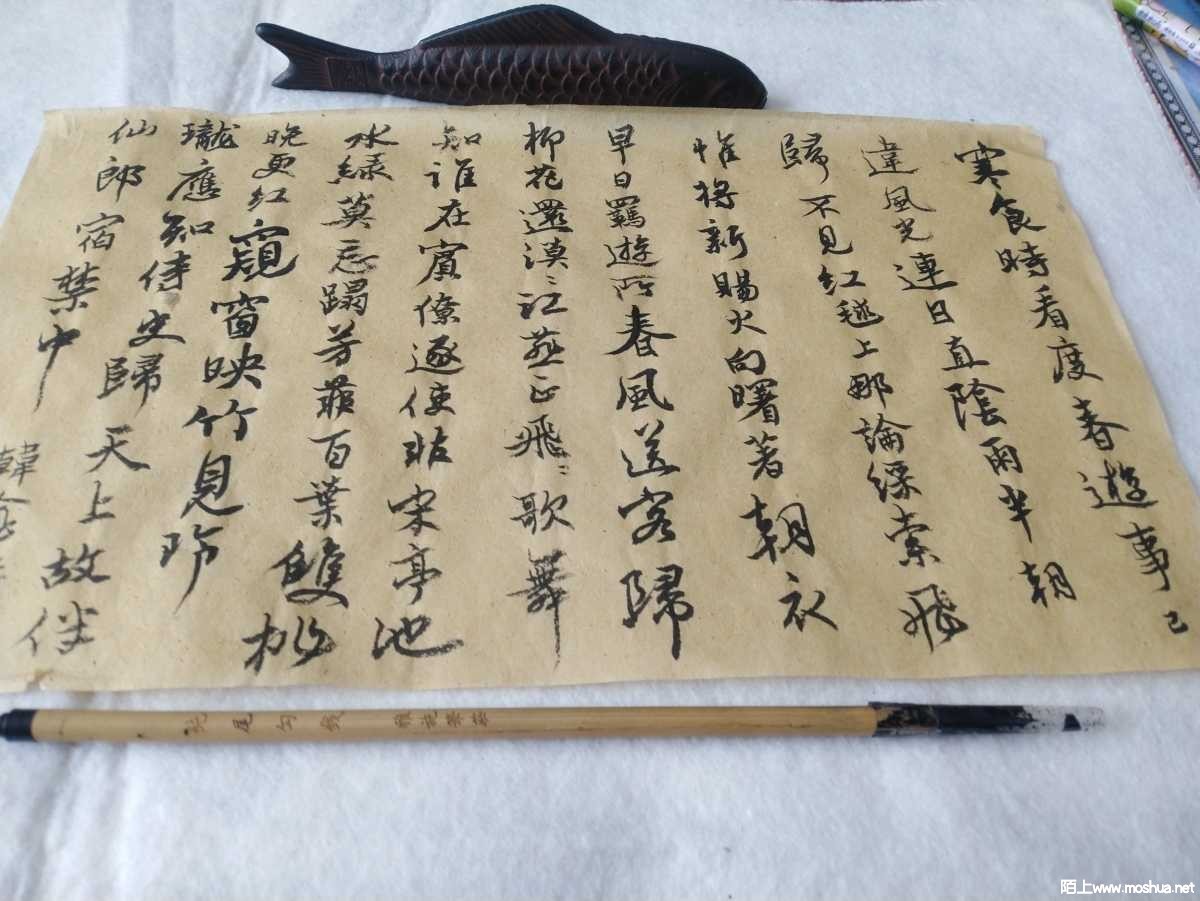 寒食時看度春遊事已
違風光連日直陰雨半朝
歸不見紅毬上那論綵索飛
惟將新賜火向曙著朝衣
早日羈遊所春風送客歸
柳花還漠〻江燕正飛〻歌舞
知誰在賓僚逐使非宋亭池
水緑莫忘蹋芳菲百葉雙桃
晚更紅窺窗映竹見玲
瓏應知侍史歸天上故伴
仙郎宿禁中
韓愈
陌上www.moshua.net